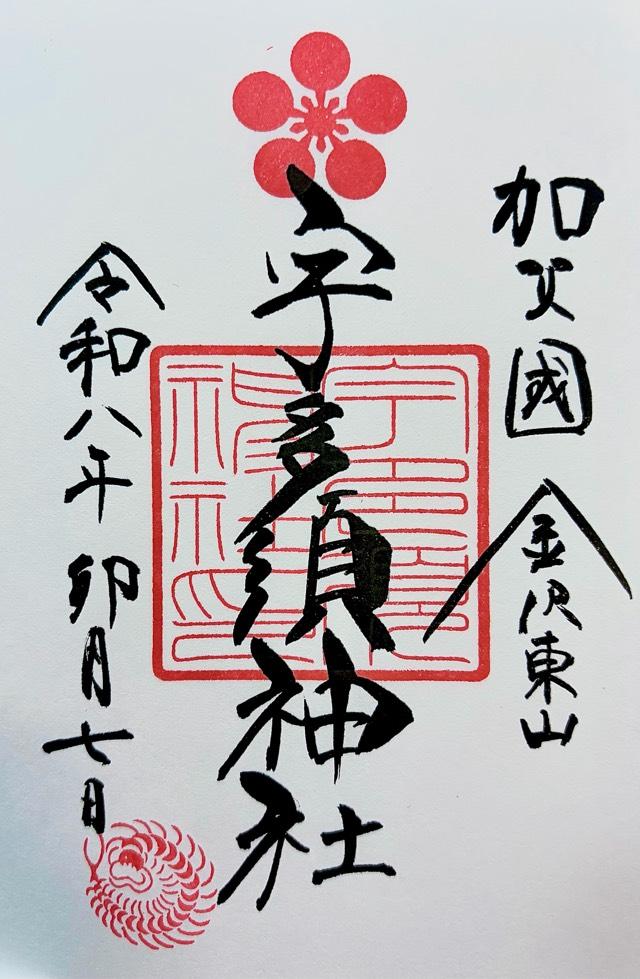 加賀國 金沢東山
宇多須神社
令和八年 卯月七日